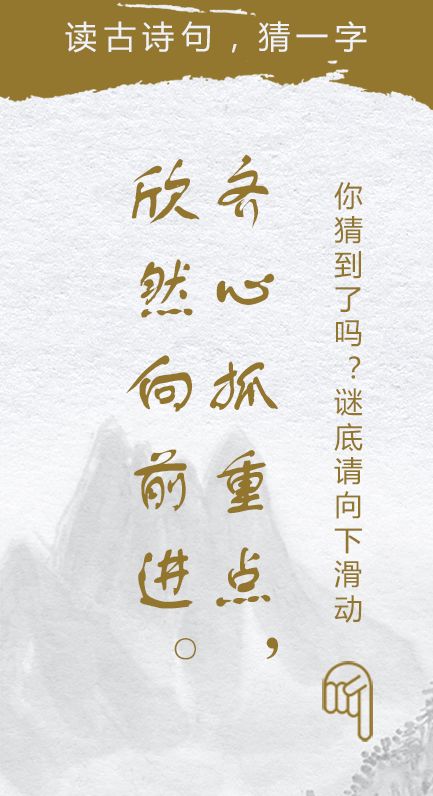 读古诗句，猜一字
你猜到了吗？谜底请向下滑动
齐心抓重点，
欣然向前进。